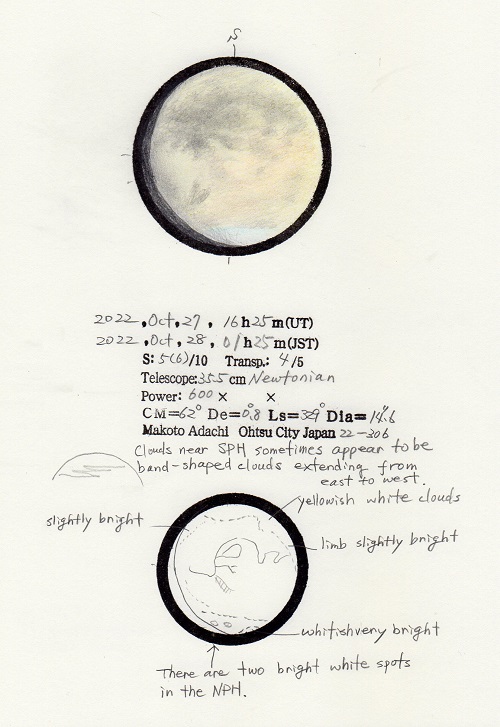 S
2022, Oct, 27, 16h25m(UT)
2022, Oct, 28, 01h25m(JST)
S: 5(6)/10 Transp.: 4/5
Telescope: 35.5 cm Newtonian
Power: 600 × ×
CM=62° De=0.8° Ls=329° Dia=14.6"
Makoto Adachi Ohtsu City Japan 22-306
Clouds near SPH sometimes appear to be
band-shaped clouds extending from
east to west.
yellowish white clouds
slightly bright
limb slightly bright
whitish very bright
There are two bright white spots
in the NPH.